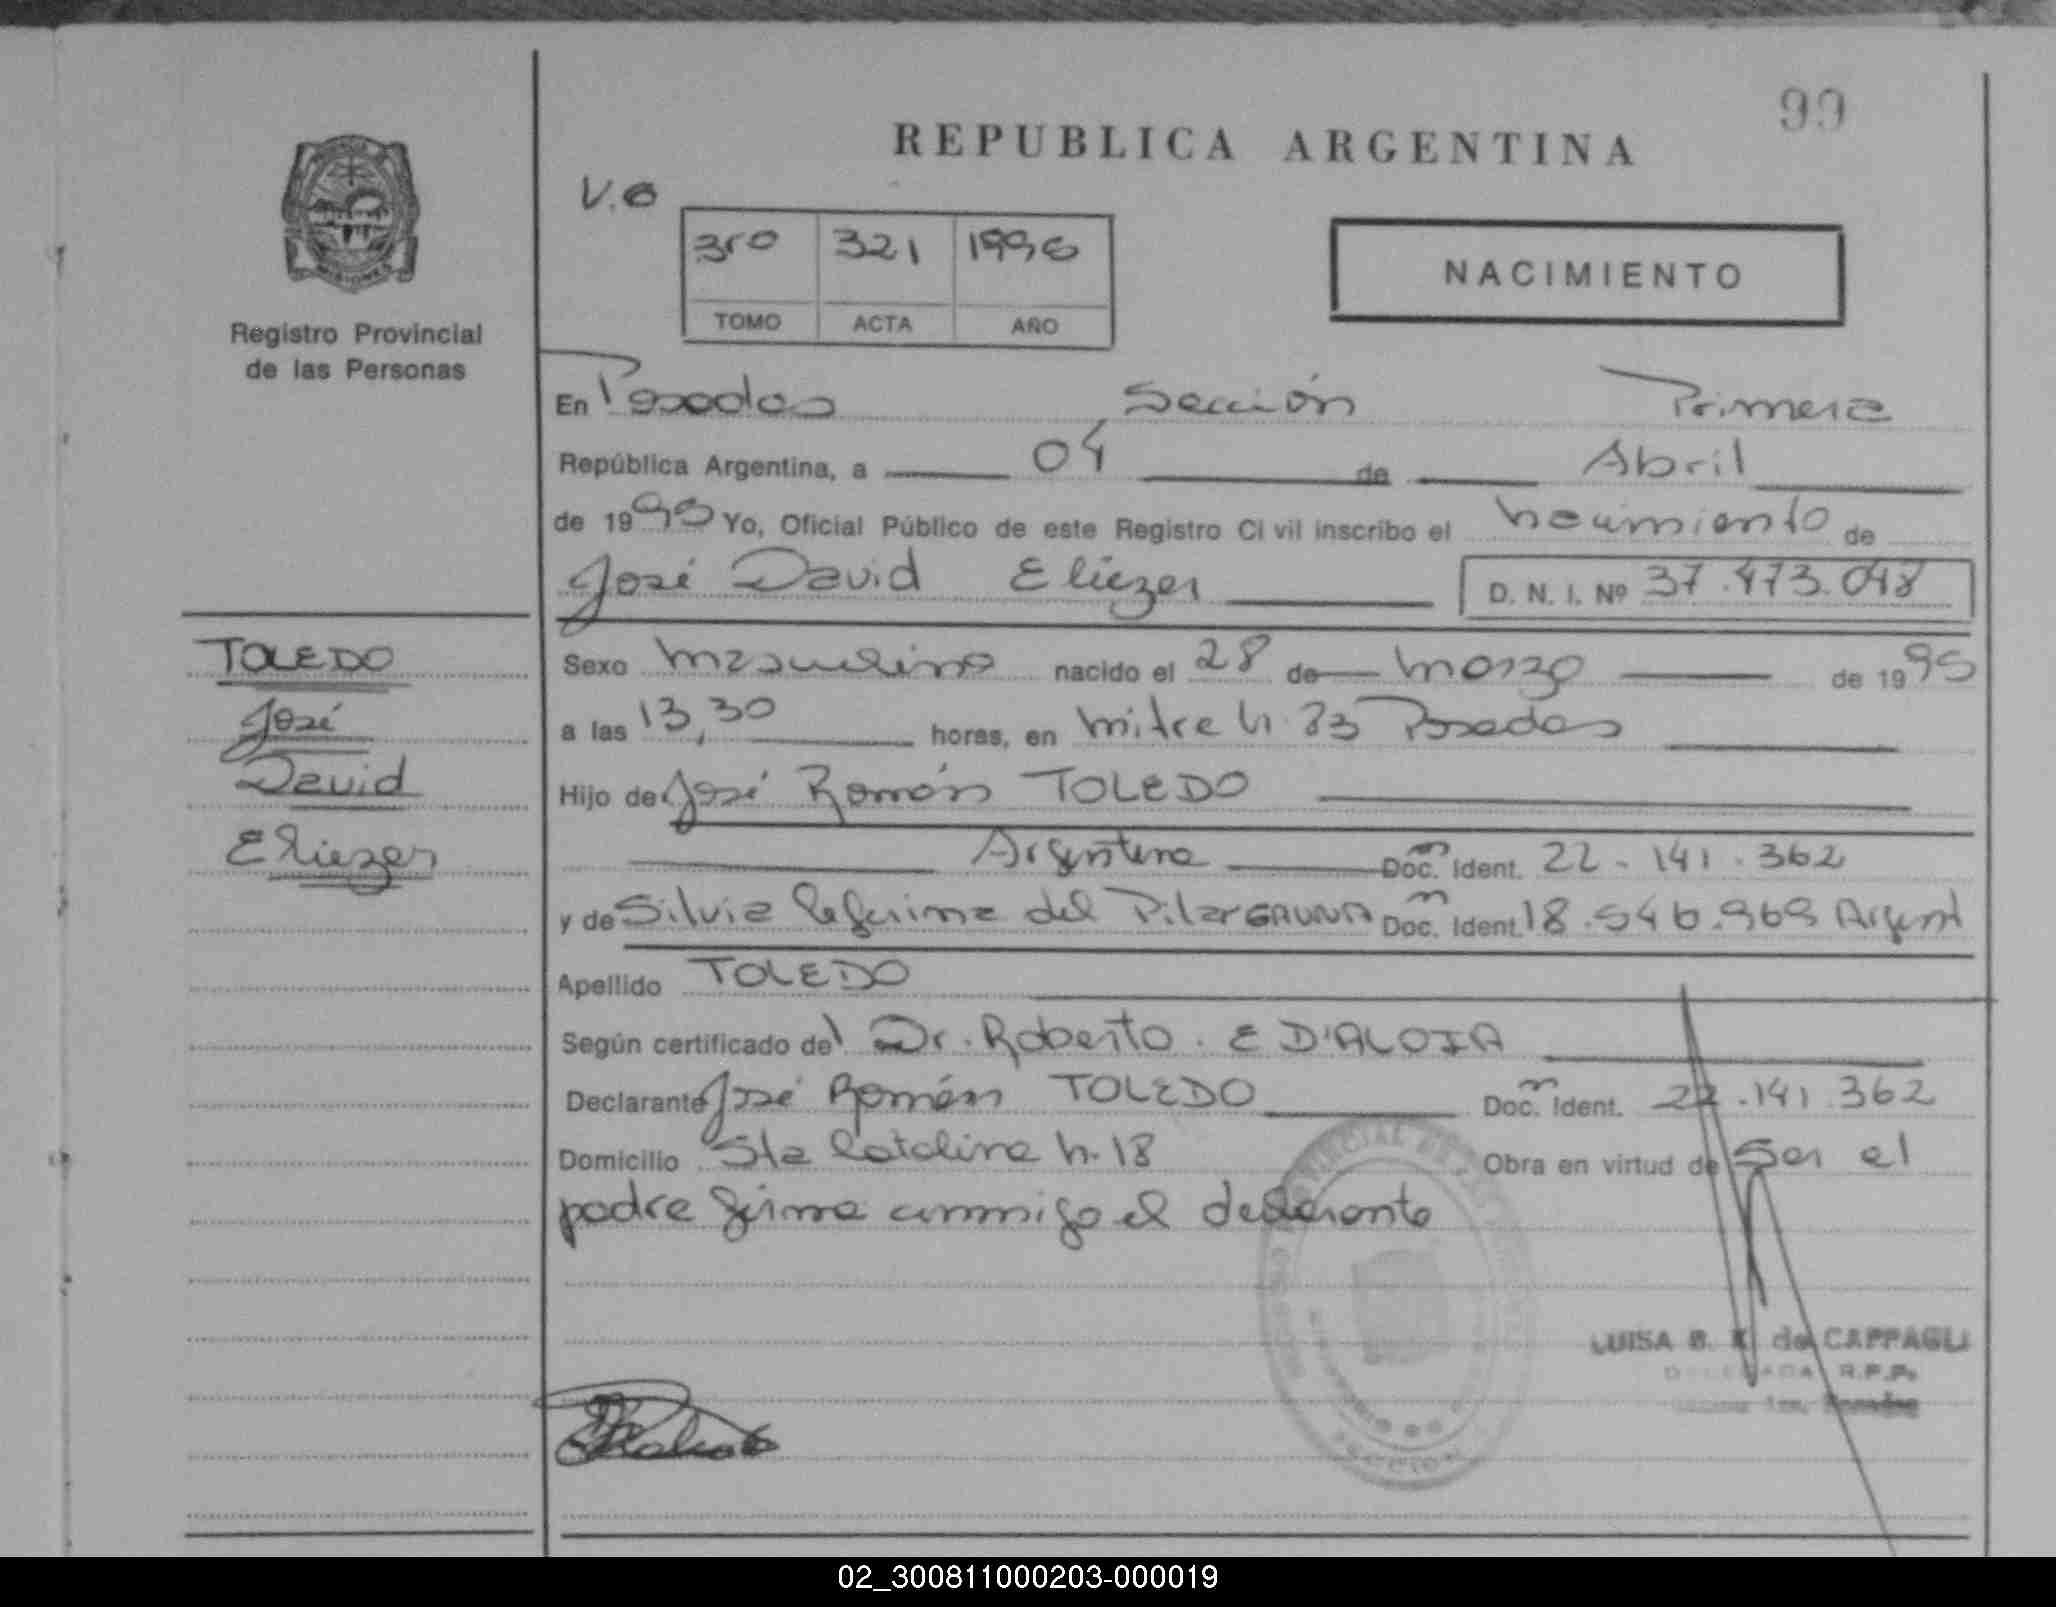 99
REPUBLICA ARGENTINA
V.O
3ro 321 1996
TOMO ACTA AÑO
NACIMIENTO
MISIONES
Registro Provincial
de las Personas
En Posadas Sección Primera
República Argentina, a 04 de Abril
de 1995 Yo, Oficial Público de este Registro Ci vil inscribo el nacimiento de
José David Eliezer D. N. I. Nº 37.473.048
TOLEDO
José
David
Eliezer
Sexo masculino nacido el 28 de marzo de 1995
a las 13,30 horas, en Mitre N. 83 Posadas
Hijo de José Román TOLEDO
Argentina Doc. Ident. 22.141.362
y de Silvia Ceferina del Pilar GAUNA Doc. Ident. 18.546.969 Argent
Apellido TOLEDO
Según certificado del Dr. Roberto. E D'ALOIA
Declarante José Román TOLEDO Doc. Ident. 22.141.362
Domicilio Sta Catalina N. 18 Obra en virtud de Ser el
padre firma conmigo el declarante
LUISA B. K. de CAPPAGLI
DELEGADA R.P.P.
02_300811000203-000019